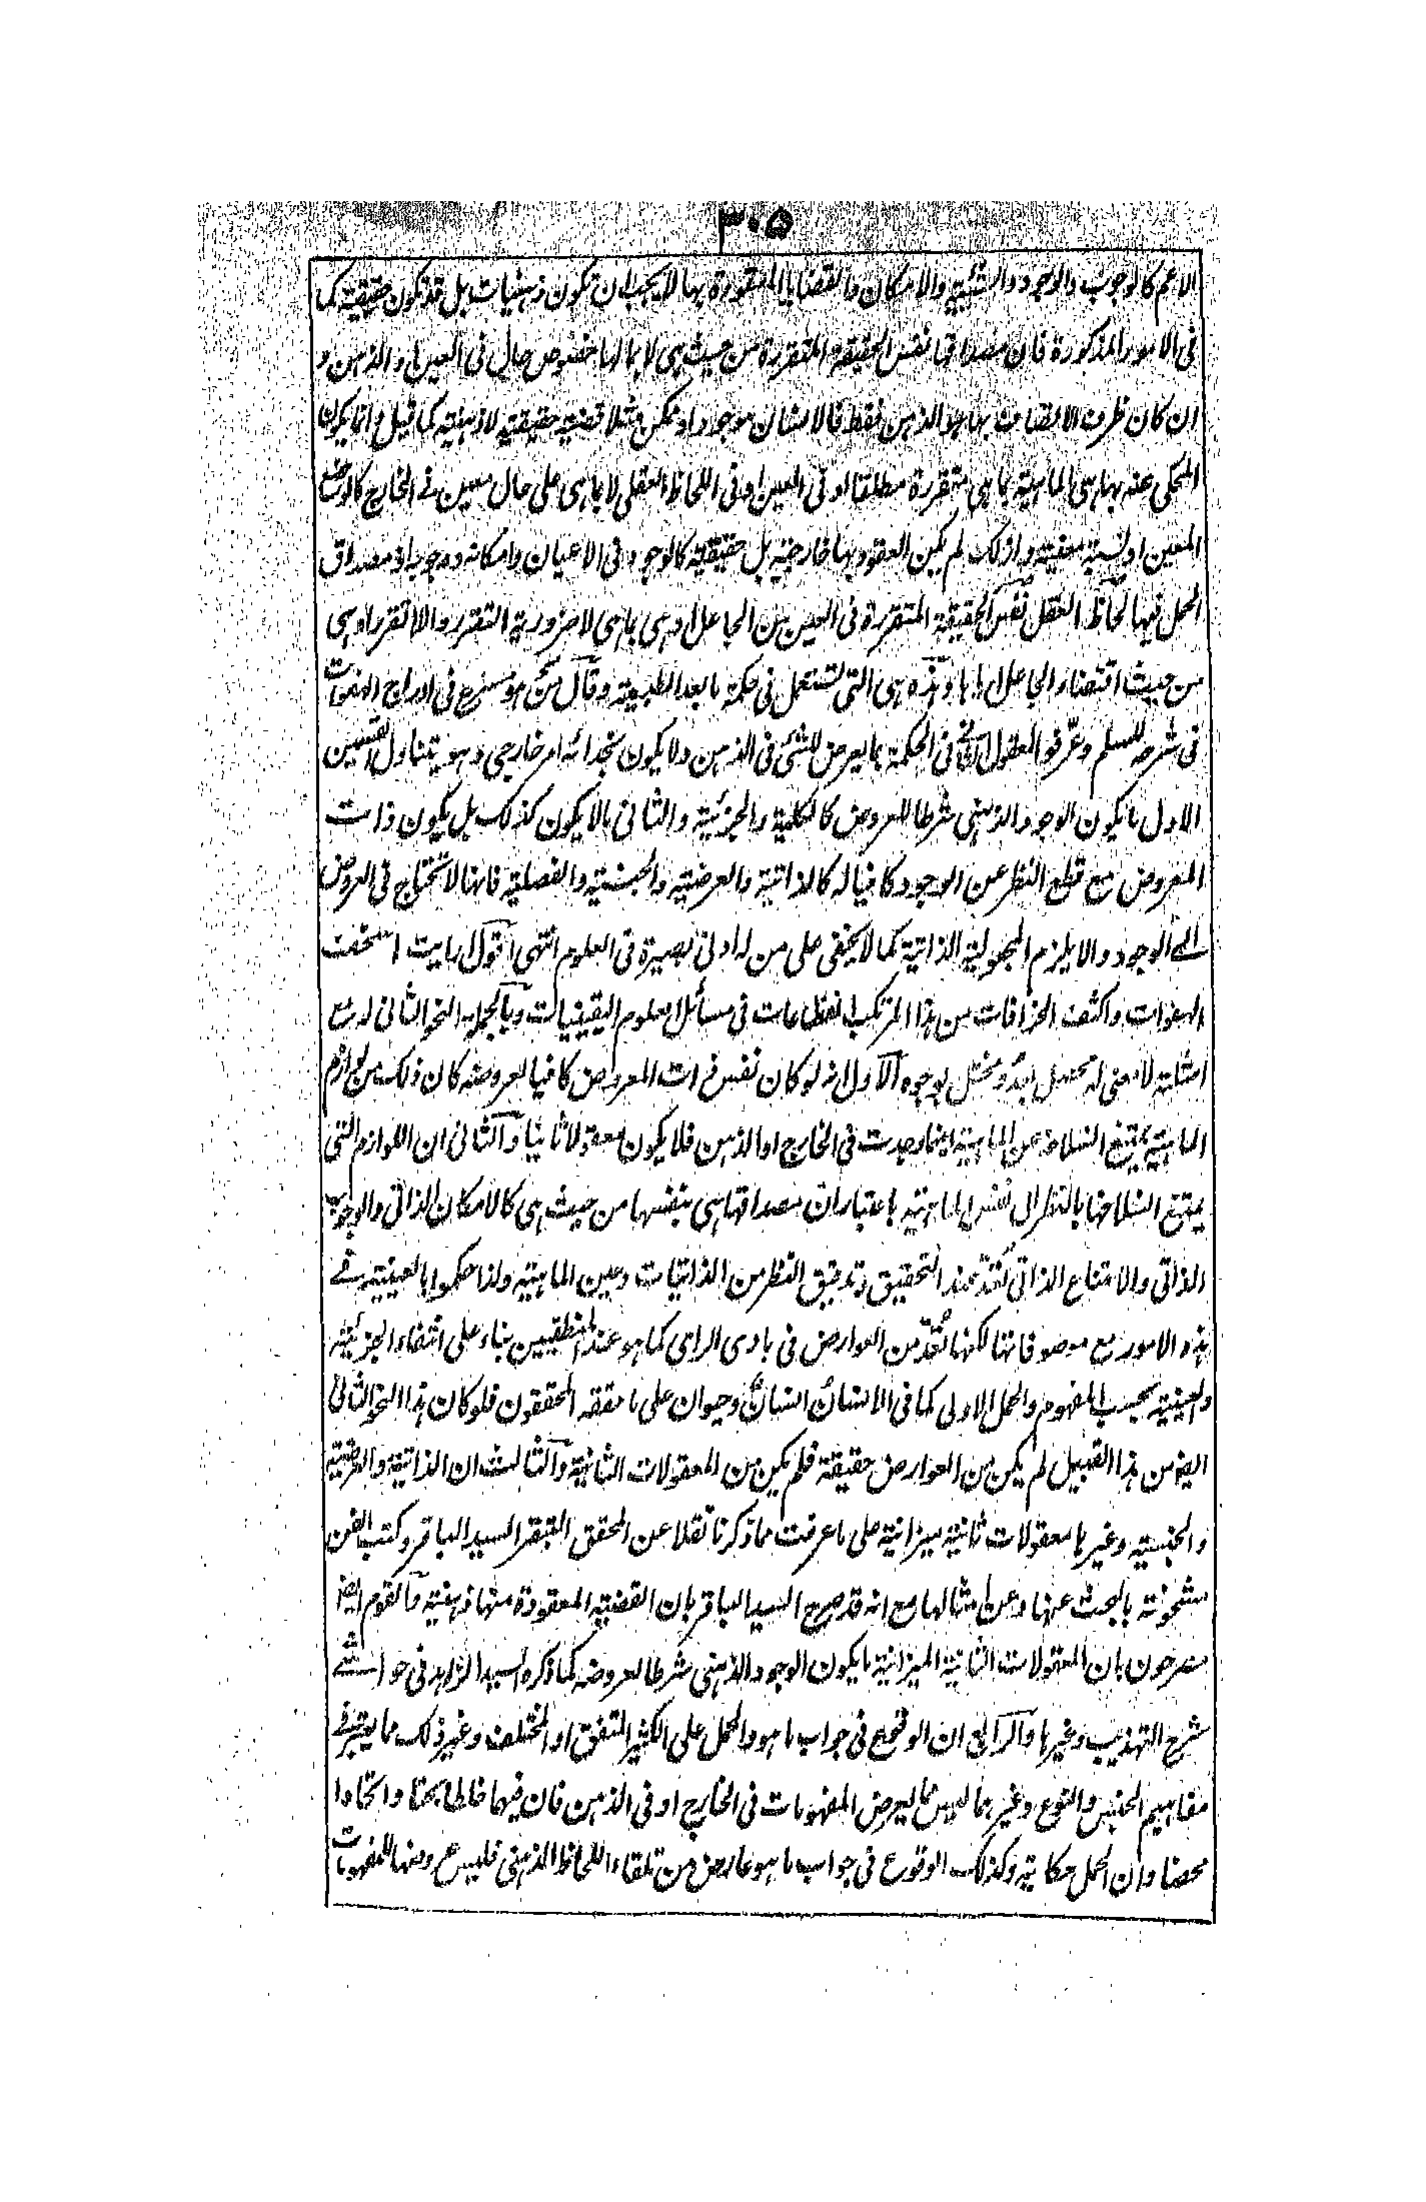 ٣٠٥
الاعم كالوجوب والوجود والشيئية والامكان والقضايا المعقودة بها لا يجب ان تكون ذهنيات بل قد تكون حقيقية كما
فى الامور المذكورة فان مصداقها نفس الحقيقة المتقررة من حيث هى لا بما لها خصوص حال فى العين او الذهن و
ان كان ظرف الاتصاف بها هو الذهن فقط فالانسان موجود او ممكن مثلا قضية حقيقية لا ذهنية كما قيل وانما يكون
المحكى عنه بها هى الماهية بما هى متقررة مطلقا او فى العين او فى اللحاظ العقلى لا بما هى على حال معين فے الخارج كالوضع
المعين او نسبة معينة ولذلك لم يكن العقود بها خارجية بل حقيقية كالوجود فى الاعيان وامكانه ووجوبه اذ مصداق
الحمل فيها لحاظ العقل نفس الحقيقة المتقررة فى العين من الجاعل او هى بما هى لا ضرورية التقرر واللا تقرر او هى
من حيث اقتضاء الجاعل اياها وهذه هى التى تستعمل فى حكمة ما بعد الطبيعة وقال من هو مسرع فى ادراج الهفوات
فى شرحه للسلم وعرفو المعقول الثانى فى الحكمة بما يعرض للشئ فى الذهن ولا يكون بحذائه امر خارجى وهو يتناول القسمين
الاول ما يكون الوجود الذهنى شرطا للعروض كالكلية والجزئية والثانى ما لا يكون كذلك بل يكون ذات
المعروض مع قطع النظر عن الوجود كافيا له كالذاتية والعرضية والجنسية والفصلية فانها لا تحتاج فى العروض
الے الوجود والا يلزم المجعولية الذاتية كما لا يخفى على من له ادنى بصيرة فى العلوم انتهى اقول رايت اسخف
الهفوات واكثف الخزافات من هذا المرتكب الفظاعات فى مسائل العلوم اليقينيات وبالجملة النحو الثانى له مع
امثلته لا معنى له محصل ابدا ومختل بوجوه الاول انه لو كان نفس ذات المعروض كافيا لعروضه كان ذلك من لوازم
الماهية يمتنع انسلاخه عن الماهية اينما وجدت فى الخارج او الذهن فلا يكون معقولا ثانيا والثانى ان اللوازم التى
يمتنع انسلاخها بالنظر الى نفس الماهية باعتبار ان مصداقها هى بنفسها من حيث هى كالامكان الذاتى والوجوب
الذاتى والامتناع الذاتى تعد عند التحقيق وتدقيق النظر من الذاتيات وعين الماهية ولذا حكموا بالعينية فے
هذه الامور مع موصوفاتها لكنها تعد من العوارض فى بادى الراى كما هو عند المنطقيين بناء على انتفاء الجزئية
والعينية بحسب المفهوم والحمل الاولى كما فى الانسان انسان وحيوان على ما حققه المحققون فلو كان هذا النحو الثانى
ايضا من هذا القبيل لم يكن من العوارض حقيقة فلم يكن من المعقولات الثانية والثالث ان الذاتية والعرضية
والجنسية وغيرها معقولات ثانية ميزانية على ما عرفت مما ذكرنا نقلا عن المحقق السيد الباقر وكتب الفن
مشحونة بالبحث عنها وعن امثالها مع انه قد صرح السيد الباقر بان القضية المعقودة منها ذهنية والقوم ايضا
مصرحون بان المعقولات الثانية الميزانية ما يكون الوجود الذهنى شرطا لعروضه كما ذكره السيد الزاهد فى حواشے
شرح التهذيب وغيرها والرابع ان الوقوع فى جواب ما هو والحمل على الكثير المتفق او المختلف وغير ذلك مما يعتبر فے
مفاهيم الجنس والنوع وغيرهما ليس مما يعرض المفهومات فى الخارج او فى الذهن فان فيها خلطا بحتا واتحادا
محضا وان الحمل حكاية وكذلك الوقوع فى جواب ما هو عارض من تلقاء اللحاظ الذهنى فليس عروضها للمفهومات